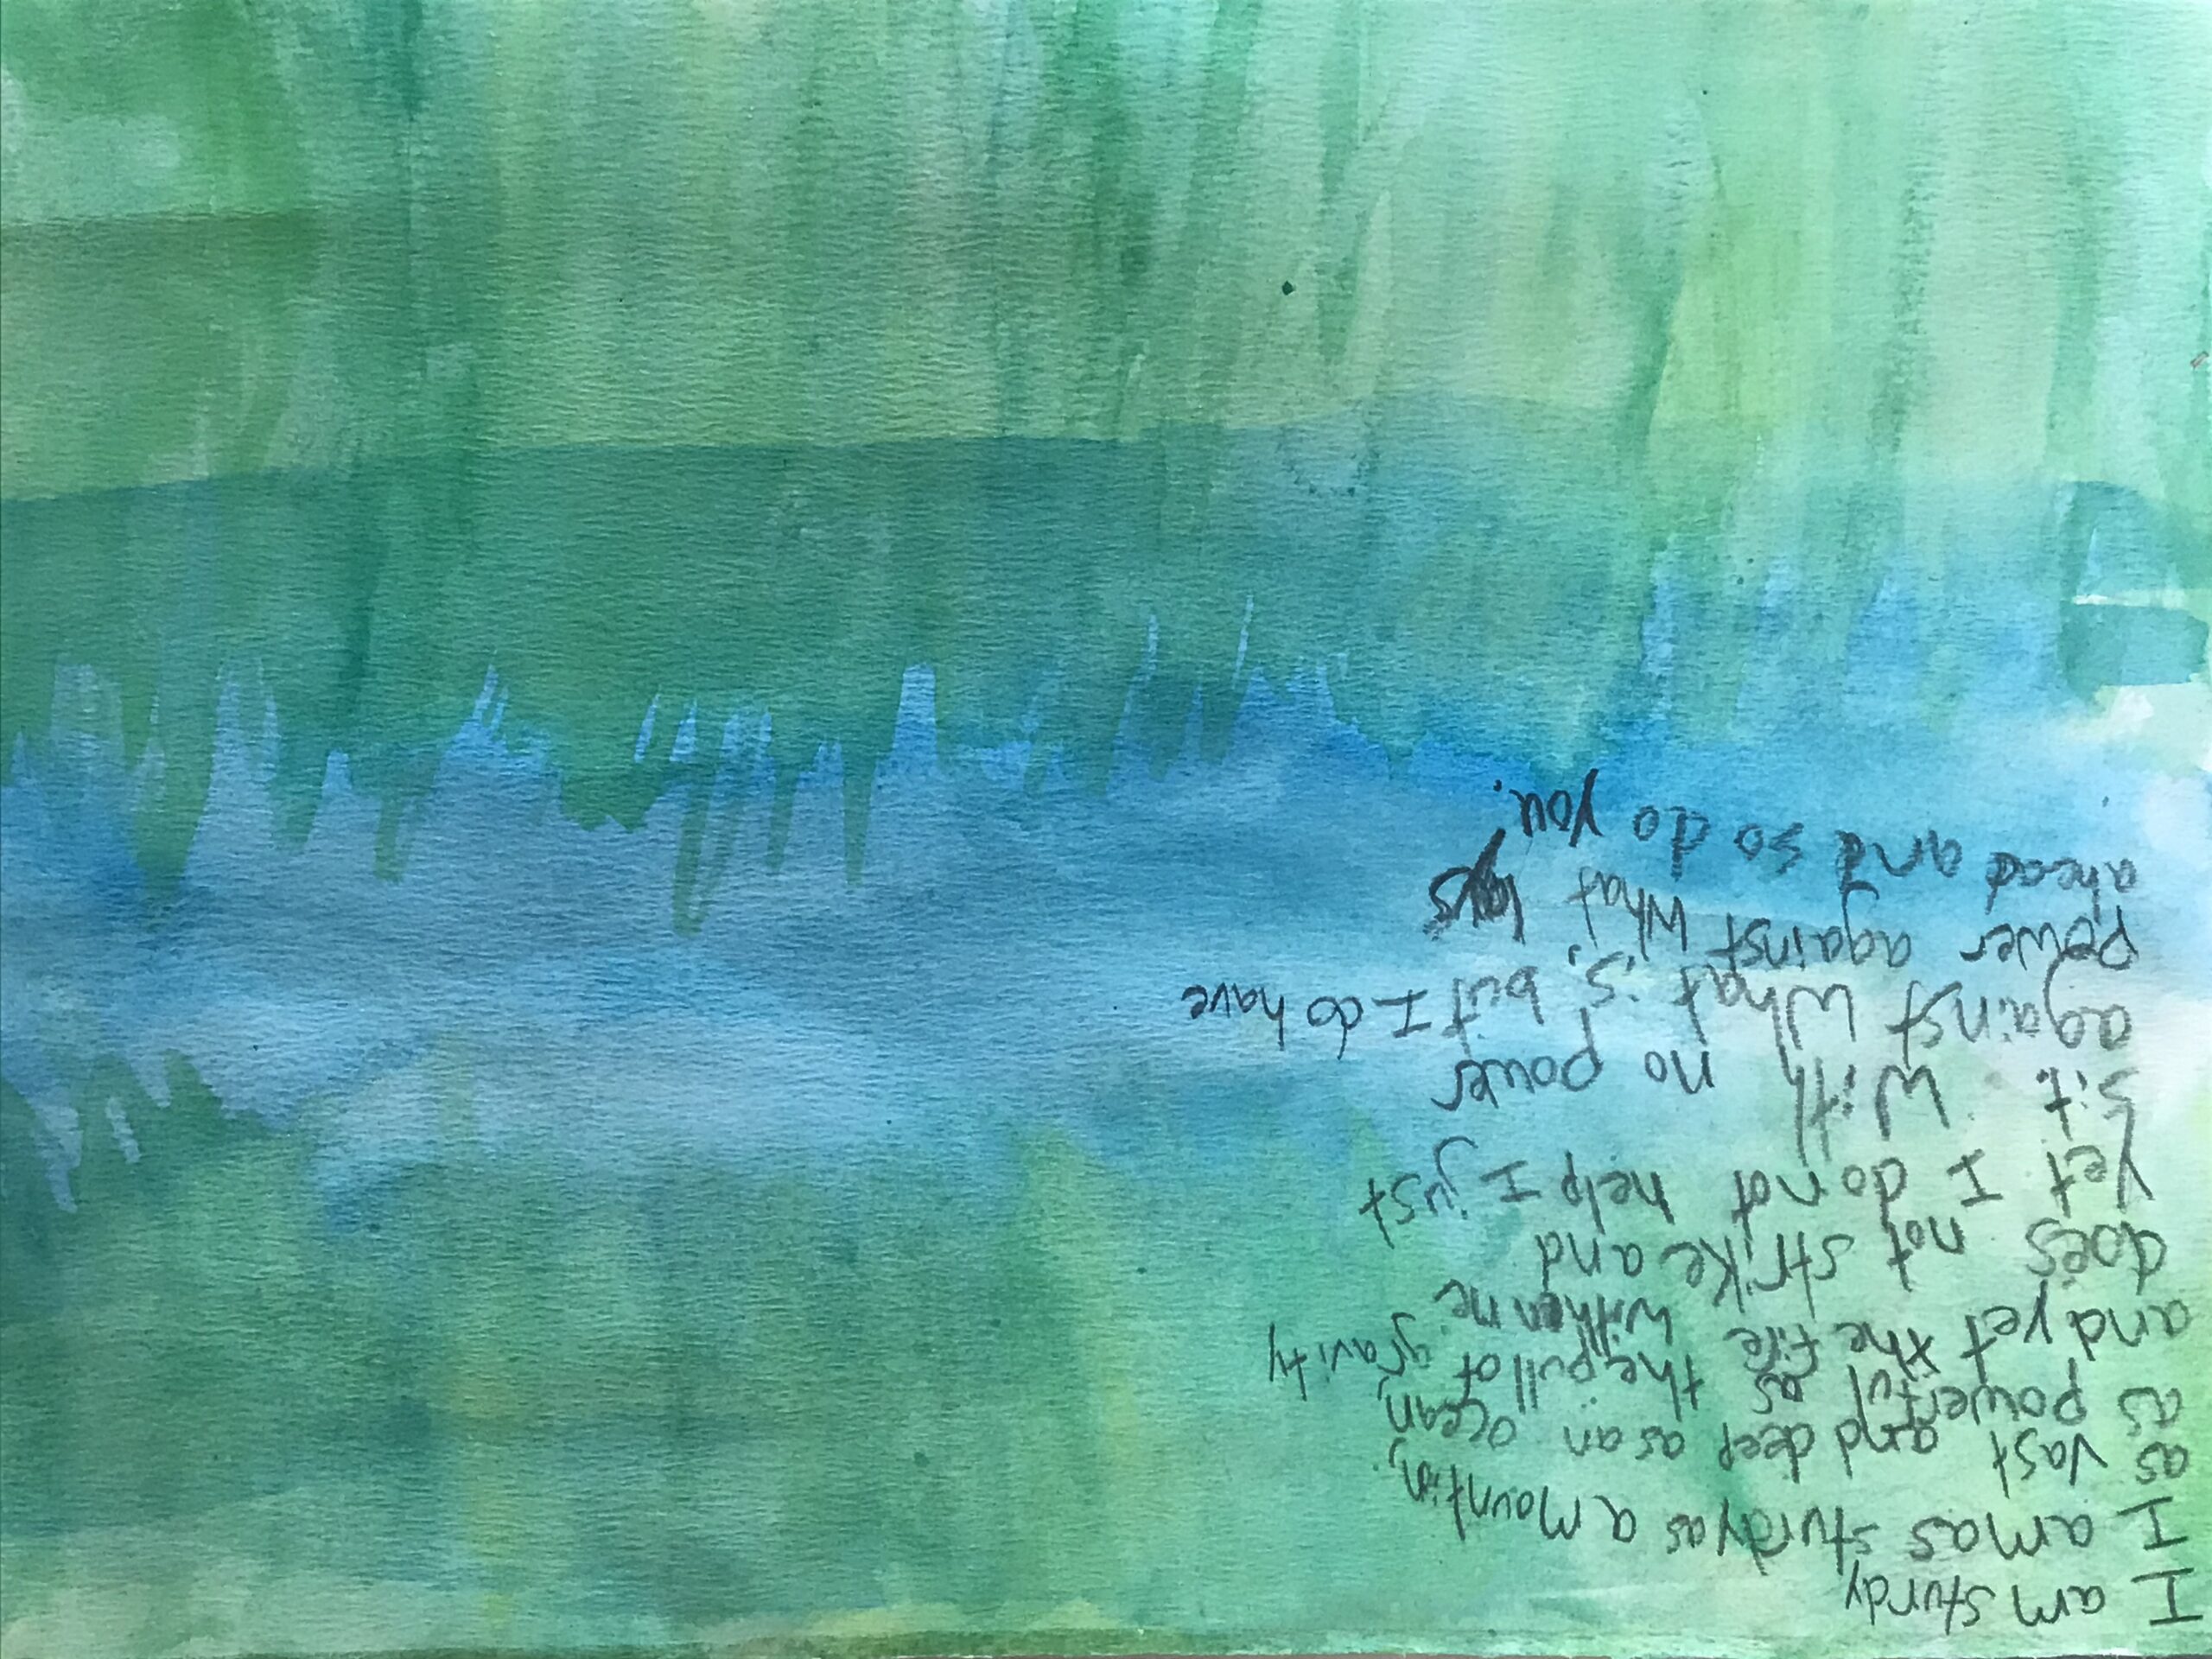 I am sturdy
I am as sturdy as a mountin,
as vast and deep as an ocean,
as powerful as the pull of gravity
and yet the fire within me
does not strike and
yet I do not help I just
sit with no power
against what is, but I do have
power against what lays
ahead and so do you.